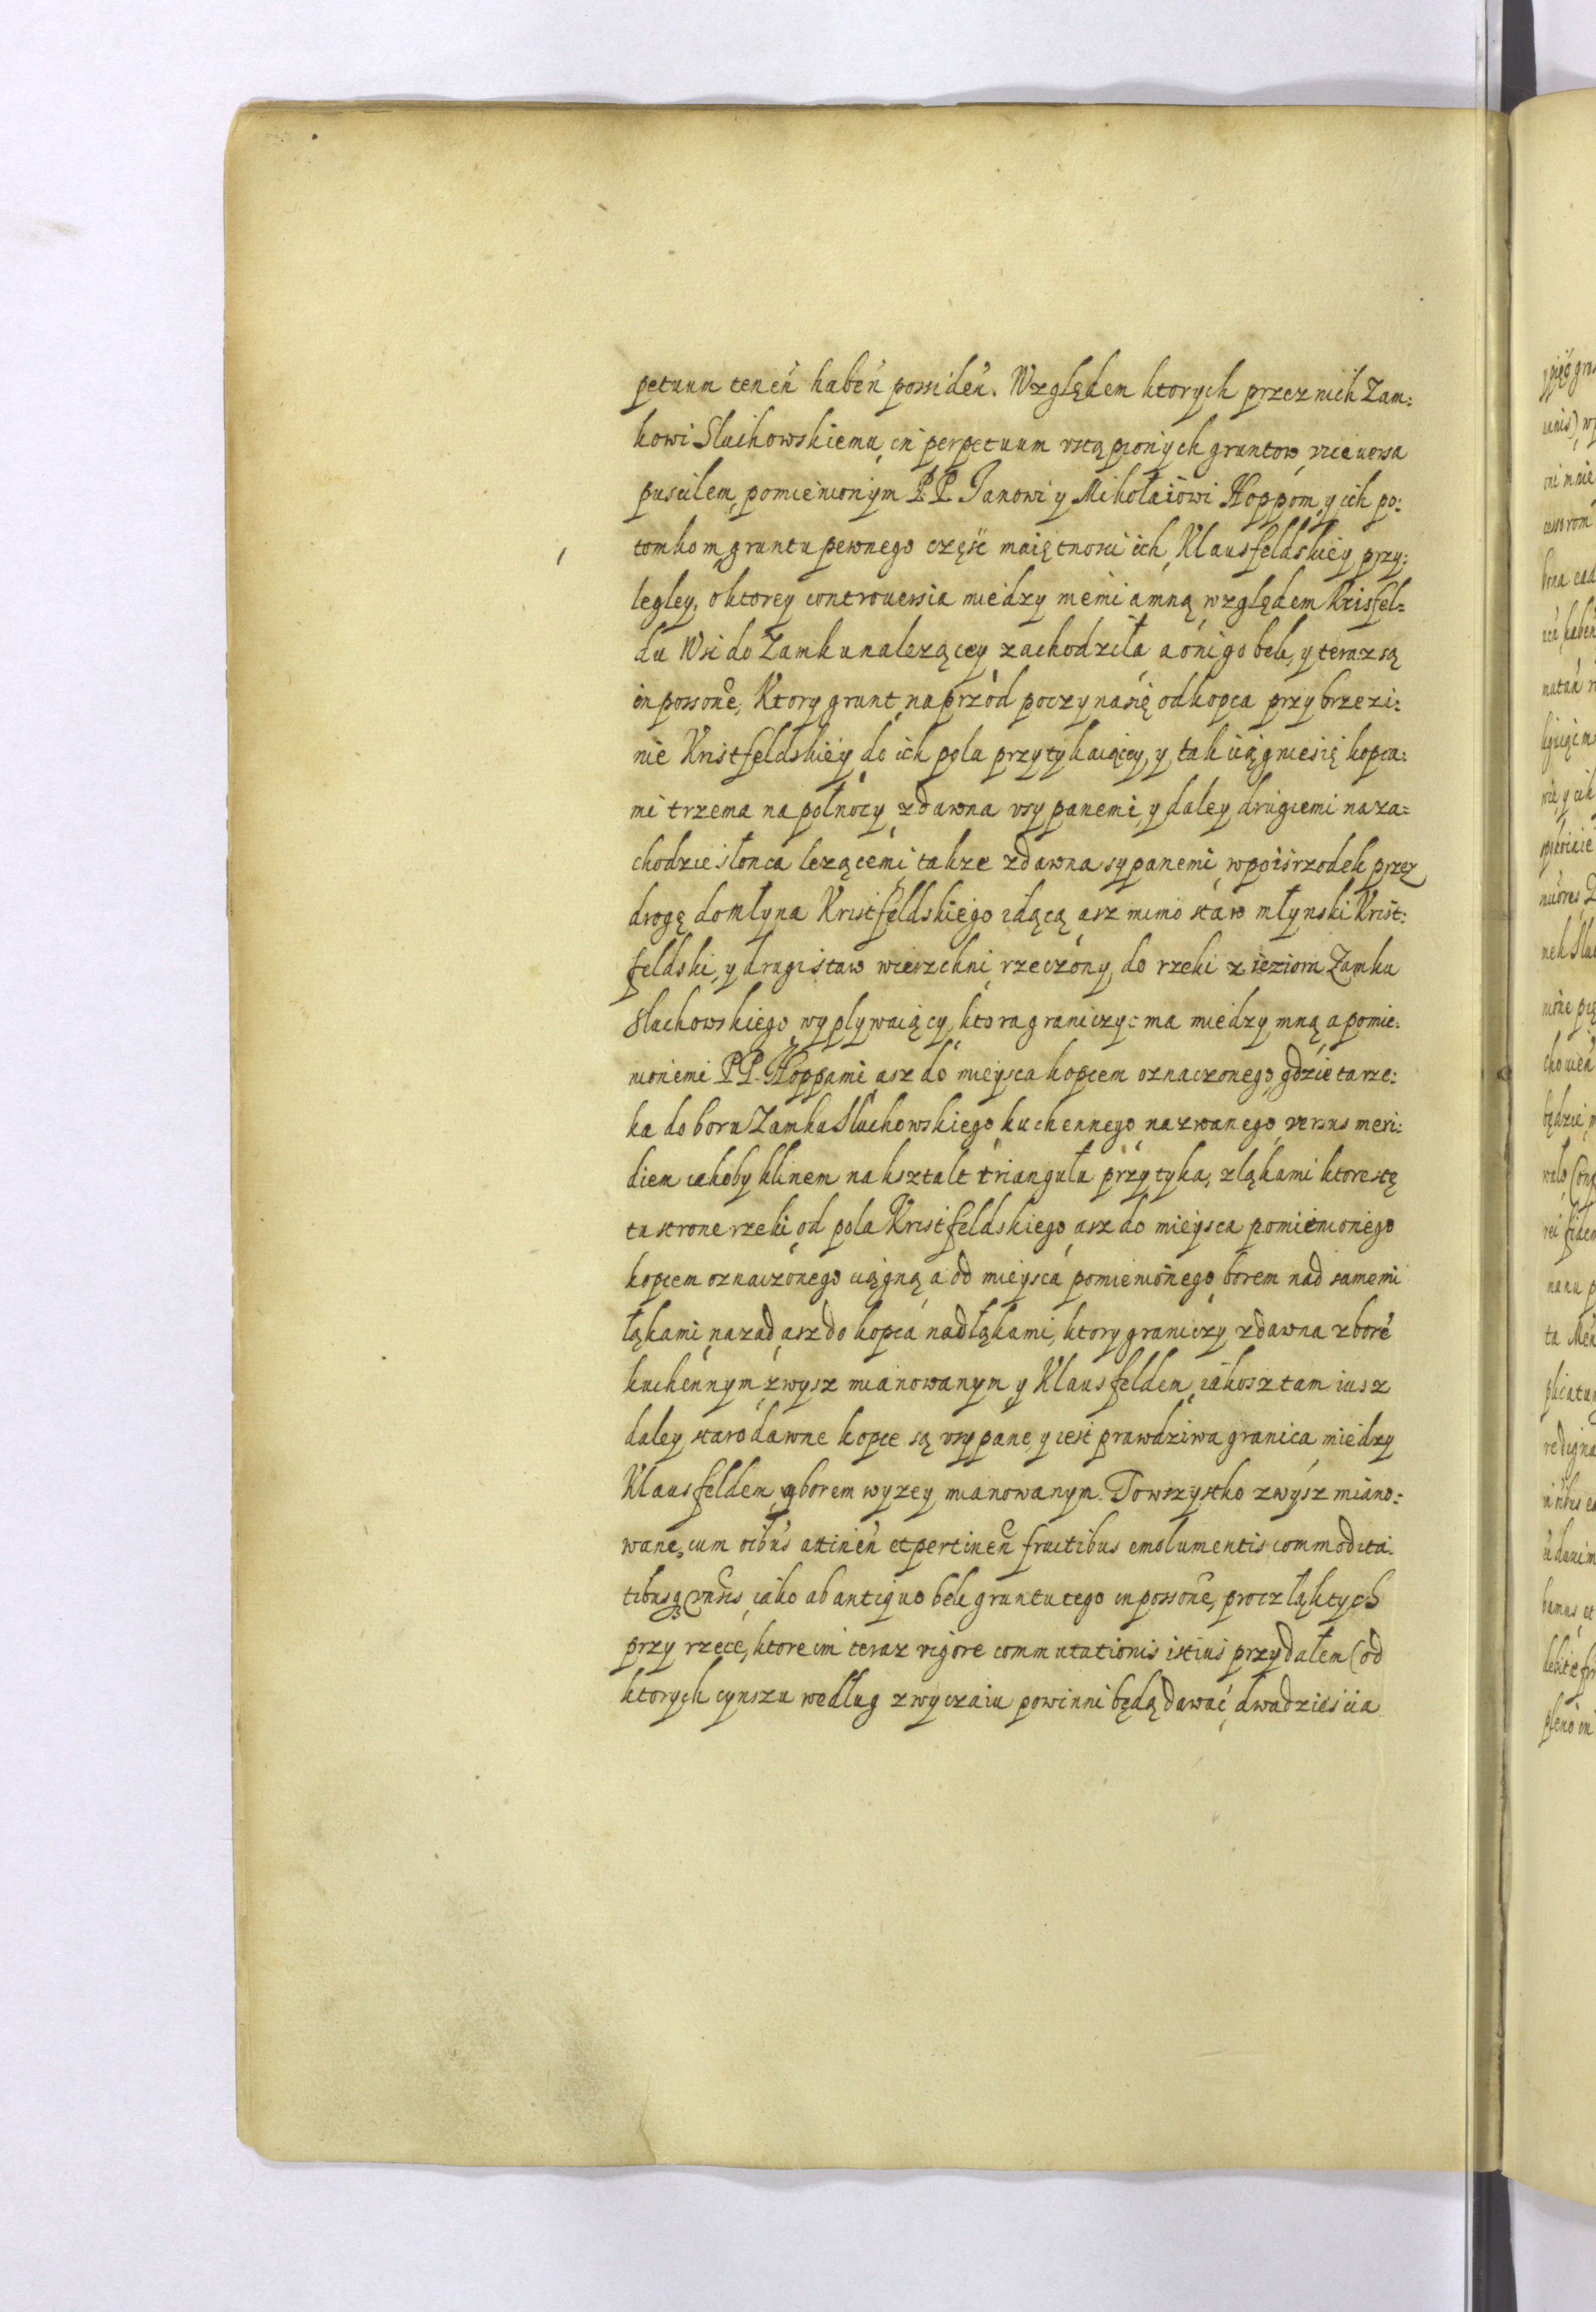 petuum teneń habeń possideń. Względem ktorych przez nich Zam:
kowi Sluchowskiemu, in perpetuum vstąpionych gruntow, vice versa
puscilem, pomienionym P.P. Janowi y Mikołaiowi Hoppom, y ich po:
tomkom, gruntu pewnego część maiętnosci ich, Klausfeldskiey przy:
legley, o ktorey controuersia miedzy niemi a mną, względem Krisfel=
du Wsi do Zamku nalezącey zachodziła, a oni go beli, y teraz są
in possone, Ktory grunt, naprzod poczyna się od kopca przy brzezi:
nie Kristfeldskiey do ich pola przytykaiącey, y tak ciągnie się kopca:
mi trzema na połnocy, zdawna vsypanemi, y daley drugiemi na za=
chodzie słonca lezącemi, takze zdawna sypanemi, w poisrzodek przez
drogę do młyna Kristfeldskiego idącą, asz mimo staw młynski Krist:
feldski, y drugi staw wierzchni, rzeczony, do rzeki z ieziora Zamku
Sluchowskiego wyplywaiący, ktora graniczyc ma miedzy mną a pomie:
nionemi P.P. Hoppami, asz do mieysca kopcem oznaczonego, gdzie ta rze:
ka do boru Zamku Sluchowskiego, kuchennego, nazwanego, versus meri:
diem iakoby klinem na ksztalt triangułu przytyka, z ląkami ktore s tę
tu strone rzeki, od pola Kristfeldskiego, asz do mieysca pomienionego
kopcem oznaczonego ciągną, a od mieysca pomienionego, borem nad samemi
łąkami, nazad, asz do kopca nad łąkami, ktory graniczy, zdawna z borē
kuchennym, zwysz mianowanym y Klausfelden, iakosz tam iusz
daley, starodawne kopce są vsypane, y iest prawdziwa granica, miedzy
Klausfelden, a borem wyzey, mianowanym. To wszystko zwysz miano:
wane, cum oibus attineń et pertineń fructibus emolumentis commodita:
tibusq, iako ab antiquo beli gruntu tego in possone, procz łąk tych
przy rzece, ktore im teraz vigore commutationis istius przydałem (od
ktorych cynszu według zwyczaiu powinni będą dawać, dwadziescia